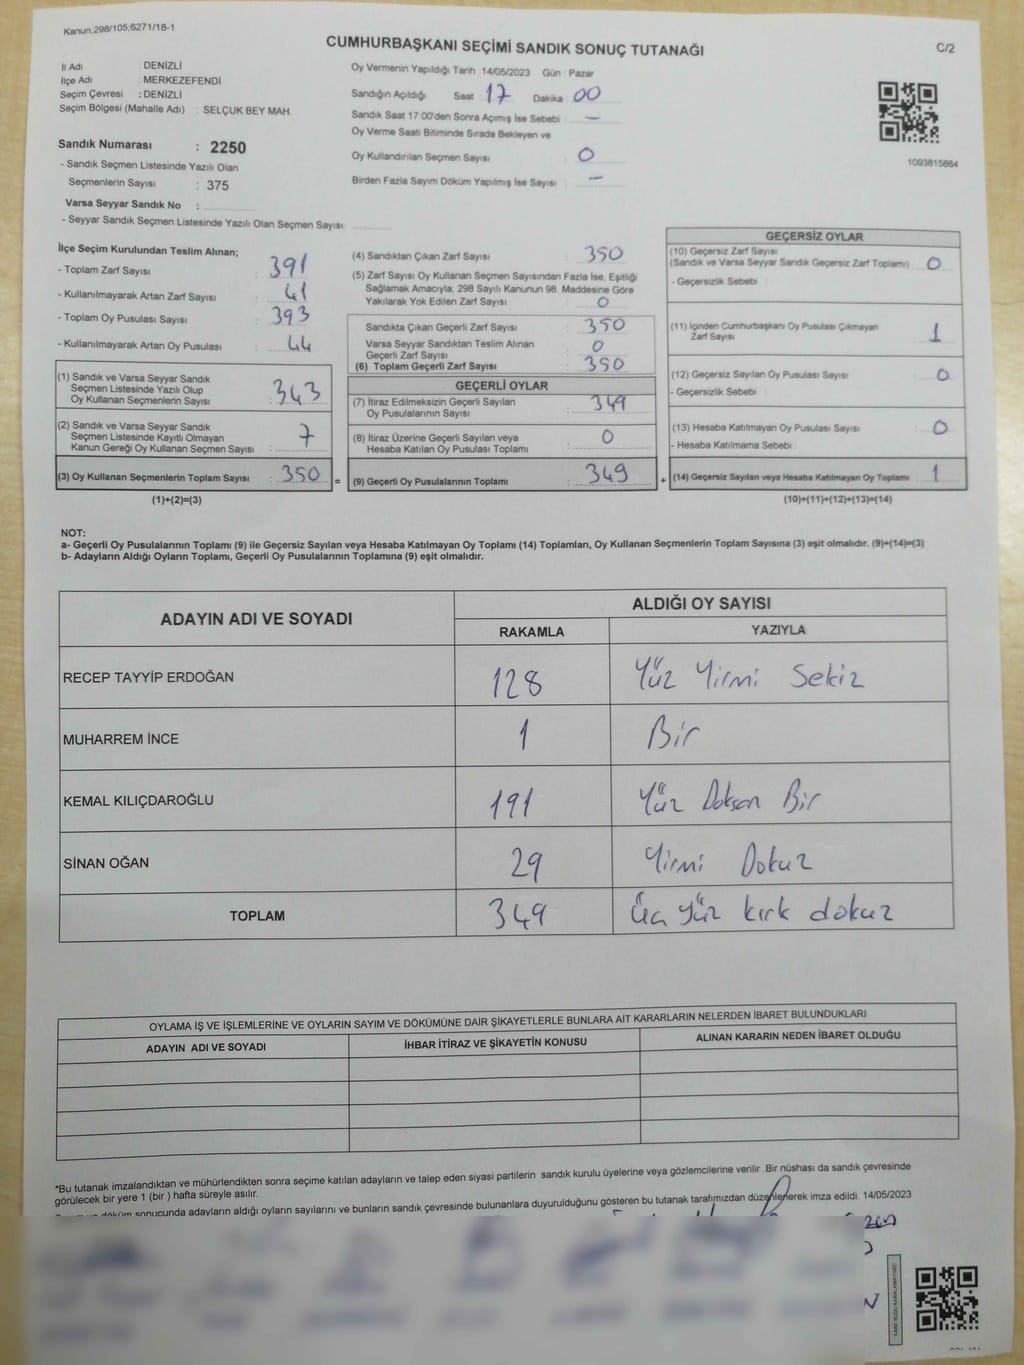 Kanun,298/105,6271/18-1
CUMHURBAŞKANI SEÇİMİ SANDIK SONUÇ TUTANAĞI
C/2
İl Adı : DENİZLİ
İlçe Adı : MERKEZEFENDİ
Seçim Çevresi : DENİZLİ
Seçim Bölgesi (Mahalle Adı) : SELÇUK BEY MAH.
Oy Vermenin Yapıldığı Tarih : 14/05/2023 Gün : Pazar
Sandığın Açıldığı Saat : 17 Dakika : 00
Sandık Saat 17:00'den Sonra Açımış İse Sebebi : —
Oy Verme Saati Bitiminde Sırada Bekleyen ve
Oy Kullandırılan Seçmen Sayısı : 0
Birden Fazla Sayım Döküm Yapılmış İse Sayısı : —
1093815884
Sandık Numarası : 2250
- Sandık Seçmen Listesinde Yazılı Olan
Seçmenlerin Sayısı : 375
Varsa Seyyar Sandık No :
- Seyyar Sandık Seçmen Listesinde Yazılı Olan Seçmen Sayısı:
İlçe Seçim Kurulundan Teslim Alınan;
- Toplam Zarf Sayısı : 391
- Kullanılmayarak Artan Zarf Sayısı : 41
- Toplam Oy Pusulası Sayısı : 393
- Kullanılmayarak Artan Oy Pusulası : 44
(1) Sandık ve Varsa Seyyar Sandık
Seçmen Listesinde Yazılı Olup
Oy Kullanan Seçmenlerin Sayısı : 343
(2) Sandık ve Varsa Seyyar Sandık
Seçmen Listesinde Kayıtlı Olmayan
Kanun Gereği Oy Kullanan Seçmen Sayısı : 7
(3) Oy Kullanan Seçmenlerin Toplam Sayısı : 350 =
(1)+(2)=(3)
(4) Sandıktan Çıkan Zarf Sayısı : 350
(5) Zarf Sayısı Oy Kullanan Seçmen Sayısından Fazla İse, Eşitliği
Sağlamak Amacıyla; 298 Sayılı Kanunun 98. Maddesine Göre
Yakılarak Yok Edilen Zarf Sayısı : 0
Sandıkta Çıkan Geçerli Zarf Sayısı : 350
Varsa Seyyar Sandıktan Teslim Alınan
Geçerli Zarf Sayısı : 0
(6) Toplam Geçerli Zarf Sayısı : 350
GEÇERLİ OYLAR
(7) İtiraz Edilmeksizin Geçerli Sayılan
Oy Pusulalarının Sayısı : 349
(8) İtiraz Üzerine Geçerli Sayılan veya
Hesaba Katılan Oy Pusulası Toplamı : 0
(9) Geçerli Oy Pusulalarının Toplamı : 349 +
GEÇERSİZ OYLAR
(10) Geçersiz Zarf Sayısı
(Sandık ve Varsa Seyyar Sandık Geçersiz Zarf Toplamı) : 0
- Geçersizlik Sebebi :
(11) İçinden Cumhurbaşkanı Oy Pusulası Çıkmayan
Zarf Sayısı : 1
(12) Geçersiz Sayılan Oy Pusulası Sayısı : 0
- Geçersizlik Sebebi :
(13) Hesaba Katılmayan Oy Pusulası Sayısı : 0
- Hesaba Katılmama Sebebi :
(14) Geçersiz Sayılan veya Hesaba Katılmayan Oy Toplamı : 1
(10)+(11)+(12)+(13)=(14)
NOT:
a- Geçerli Oy Pusulalarının Toplamı (9) ile Geçersiz Sayılan veya Hesaba Katılmayan Oy Toplamı (14) Toplamları, Oy Kullanan Seçmenlerin Toplam Sayısına (3) eşit olmalıdır. (9)+(14)=(3)
b- Adayların Aldığı Oyların Toplamı, Geçerli Oy Pusulalarının Toplamına (9) eşit olmalıdır.
ADAYIN ADI VE SOYADI
ALDIĞI OY SAYISI
RAKAMLA YAZIYLA
RECEP TAYYİP ERDOĞAN 128 Yüz Yirmi Sekiz
MUHARREM İNCE 1 Bir
KEMAL KILIÇDAROĞLU 191 Yüz Doksan Bir
SİNAN OĞAN 29 Yirmi Dokuz
TOPLAM 349 Üç yüz kırk dokuz
OYLAMA İŞ VE İŞLEMLERİNE VE OYLARIN SAYIM VE DÖKÜMÜNE DAİR ŞİKAYETLERLE BUNLARA AİT KARARLARIN NELERDEN İBARET BULUNDUKLARI
ADAYIN ADI VE SOYADI İHBAR İTİRAZ VE ŞİKAYETİN KONUSU ALINAN KARARIN NEDEN İBARET OLDUĞU
*Bu tutanak imzalandıktan ve mühürlendikten sonra seçime katılan adayların ve talep eden siyasi partilerin sandık kurulu üyelerine veya gözlemcilerine verilir .Bir nüshası da sandık çevresinde
görülecek bir yere 1 (bir ) hafta süreyle asılır.
döküm sonucunda adayların aldığı oyların sayılarını ve bunların sandık çevresinde bulunanlara duyurulduğunu gösteren bu tutanak tarafımızdan düzenlenerek imza edildi. 14/05/2023